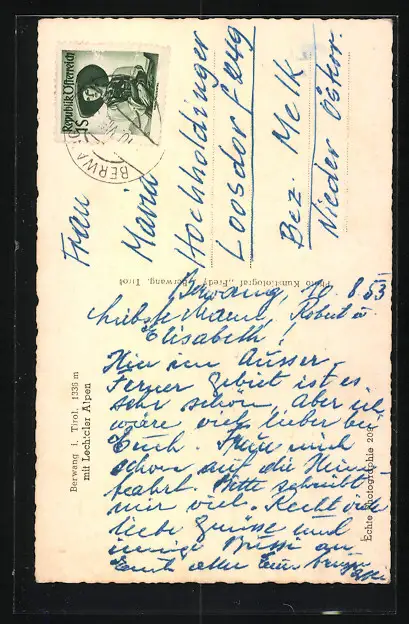 Republik Österreich
1S
BERWANG
Frau
Maria
Hochholdinger
Loosdorf
Bez. Melk
Nieder Österr.
Photo Kunstfotograf „Fredy“, Berwang, Tirol
Berwang, 10. 8. 53
Liebste Mama, Robert u
Elisabeth!
Hier im Ausser-
ferner Gebiet ist es
sehr schön, aber ich
wäre viel lieber bei
Euch. Freue mich
schon auf die Heim-
fahrt. Bitte schreibt
mir viel. Recht viele
liebe Grüsse und
innige Bussi an
Euch alle
Berwang i. Tirol, 1336 m
mit Lechtaler Alpen
Echte Photographie 209